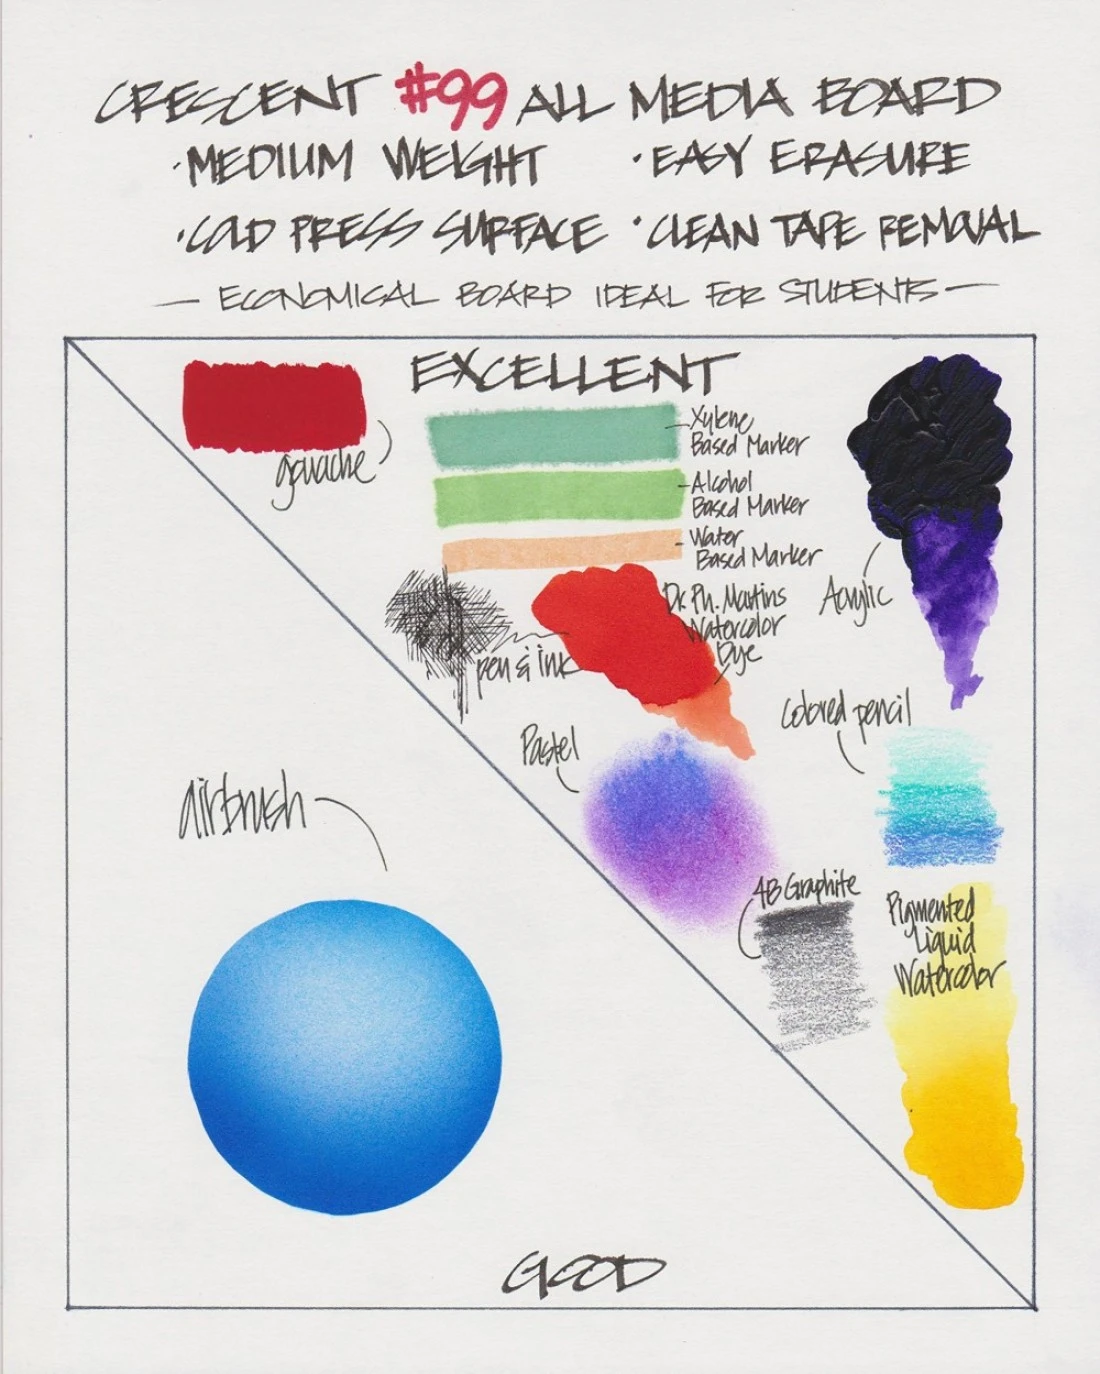 CRESCENT #99 ALL MEDIA BOARD
·MEDIUM WEIGHT ·EASY ERASURE
·COLD PRESS SURFACE ·CLEAN TAPE REMOVAL
— ECONOMICAL BOARD IDEAL FOR STUDENTS —
EXCELLENT
gouache
Xylene
Based Marker
Alcohol
Based Marker
Water
Based Marker
Acrylic
pen & ink
Dr. Ph. Martins
Watercolor
Dye
Colored pencil
Pastel
airbrush
4B Graphite
Pigmented
Liquid
Watercolor
GOOD